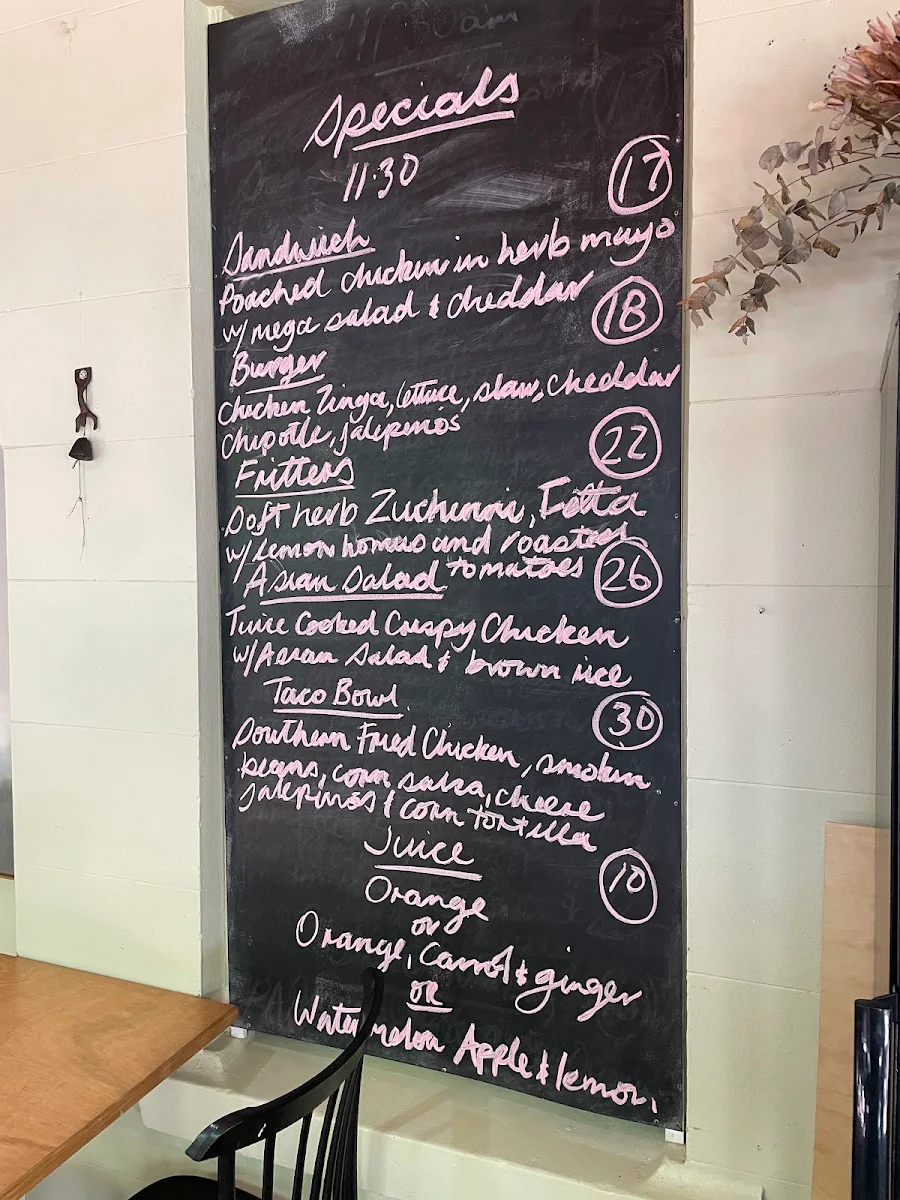 Specials
11.30
17
Sandwich
Poached chicken in herb mayo
w/ mega salad & cheddar
18
Burger
Chicken Zinga, lettuce, slaw, cheddar
Chipotle, jalepinos
22
Fritters
Soft herb Zuchinni, Fetta
w/ lemon homus and roasted
tomatoes
26
Asian Salad
Twice Cooked Crispy Chicken
w/ Asian Salad & brown rice
Taco Bowl.
30
Southern Fried Chicken, smokin
beans, corn salsa, cheese
Jalepinos & corn tortilla
Juice
10
Orange
or
Orange, Carrot & ginger
OR
Watermelon Apple & lemon.